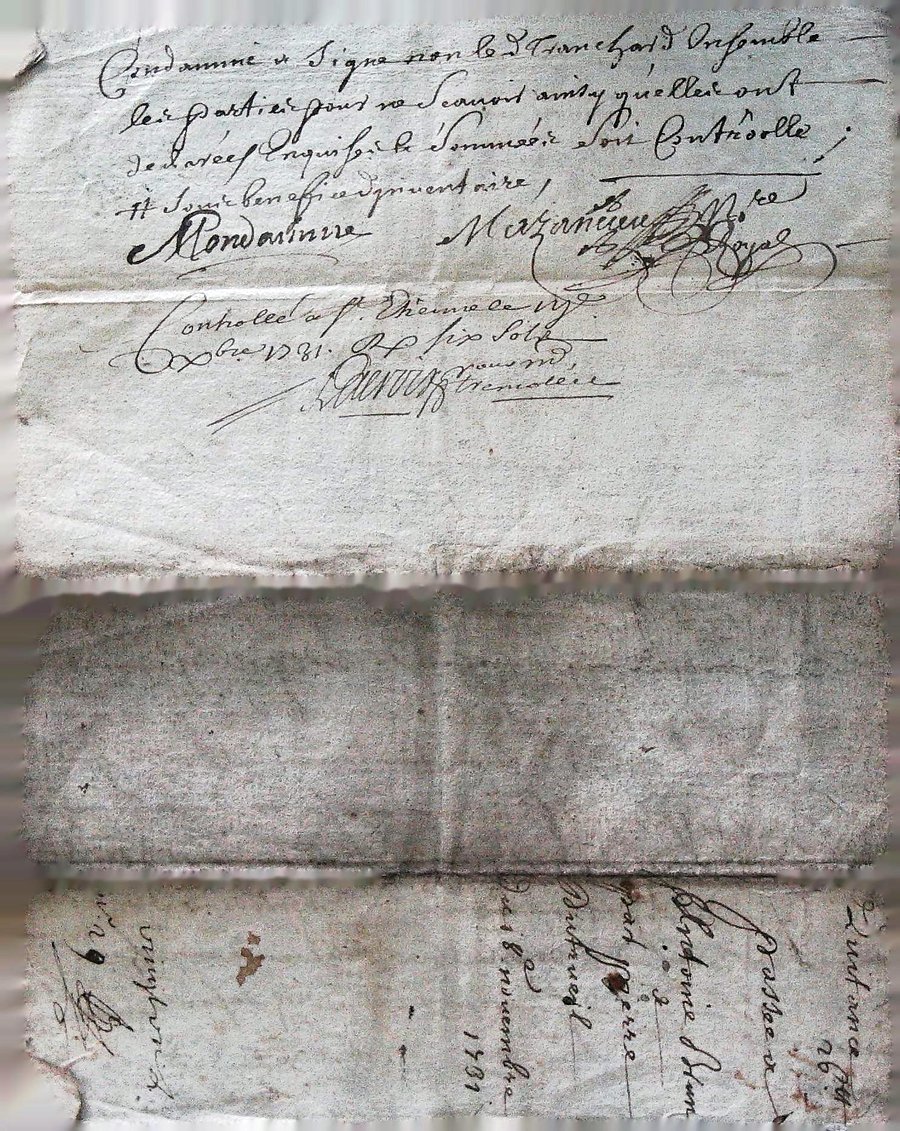 Condamine a Signe non led Tranchard Ensemble
les parties pour ne Scavoir ainsy qu'elles ont
declarées Enquises & Sommées Soit Controolle
# Sous benefice d'inventaire,
Mondamine Mazancieu Nore
Royal
Controllé a St. Etienne le
xbre 1731. Rx six Sols
Quittance
26
passée a
Antoine Brun
par Pierre
Dutrueil
Du 18e novembre
1731